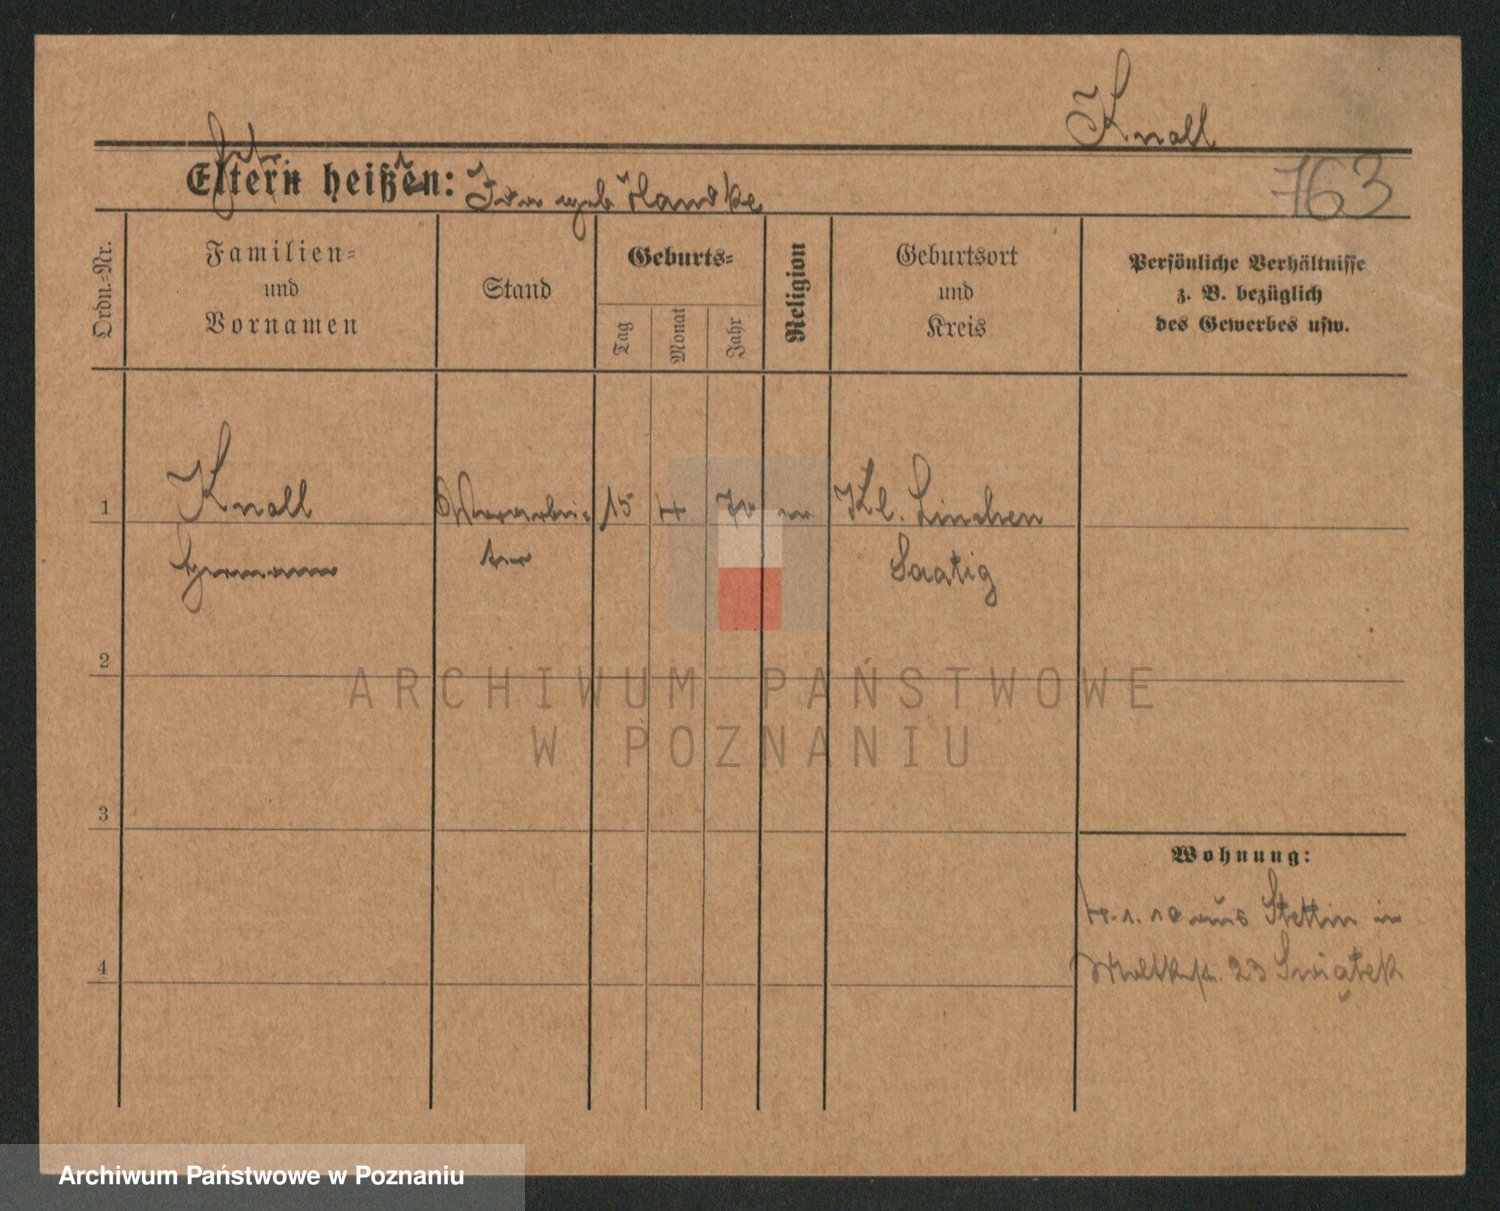 Knoll
763
Eltern heißen: geb Handke
Ordn.=Nr.
Familien=
und
Vornamen
Stand
Geburts=
Tag
Monat
Jahr
Religion
Geburtsort
und
Kreis
Persönliche Verhältnisse
z. B. bezüglich
des Gewerbes usw.
1
Knoll 15 4 70 Kl. Linichen
Hermann Saatig
2
ARCHIWUM PAŃSTWOWE
W POZNANIU
3
Wohnung:
4. 1. 10 aus Stettin in
4
Moltkestr. 23 Swiątek
Archiwum Państwowe w Poznaniu